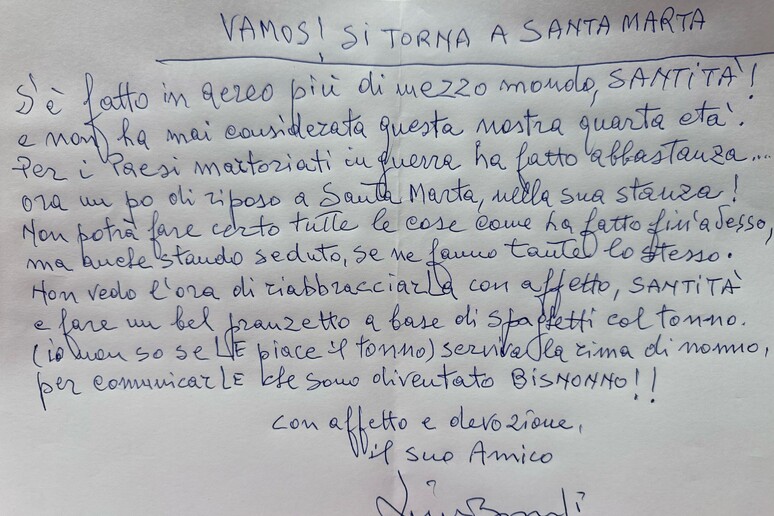 VAMOS! SI TORNA A SANTA MARTA
S'è fatto in aereo più di mezzo mondo, SANTITÀ!
e non ha mai considerata questa nostra quarta età.
Per i Paesi martoriati in guerra ha fatto abbastanza...
ora un po di riposo a Santa Marta, nella sua stanza!
Non potrà fare certo tutte le cose come ha fatto fin'adesso,
ma anche stando seduto, se ne fanno tante lo stesso.
Non vedo l'ora di riabbracciarLa con affetto, SANTITÀ
e fare un bel pranzetto a base di spaghetti col tonno.
(io non so se LE piace il tonno) serviva la rima di nonno,
per comunicarLE che sono diventato BISNONNO!!
con affetto e devozione,
il suo Amico